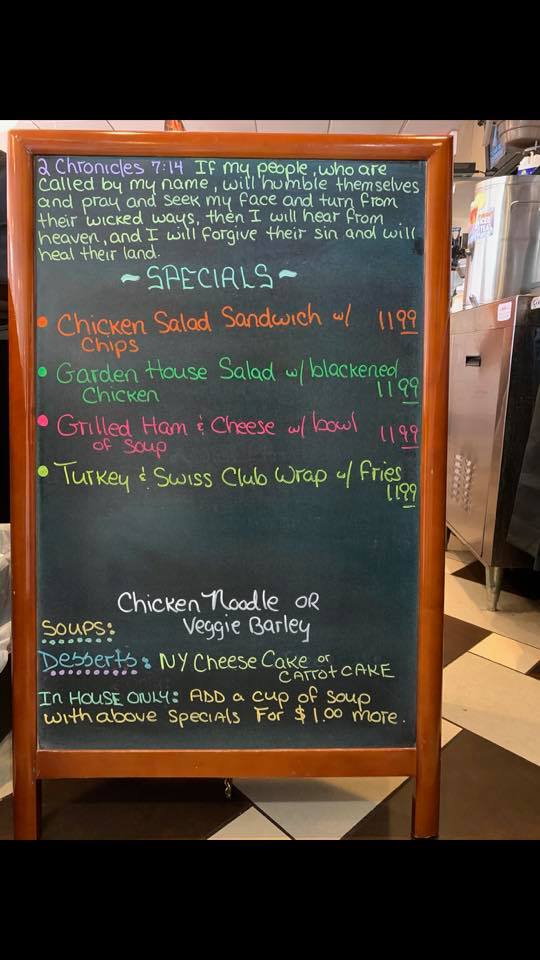 2 Chronicles 7:14 If my people, who are
called by my name, will humble themselves
and pray and seek my face and turn from
their wicked ways, then I will hear from
heaven, and I will forgive their sin and will
heal their land.
~SPECIALS~
• Chicken Salad Sandwich w/ 1199
Chips
• Garden House Salad w/blackened
Chicken 1199
• Grilled Ham & Cheese w/ bowl 1199
of Soup
• Turkey & Swiss Club Wrap w/ Fries
1199
Chicken Noodle OR
Soups: Veggie Barley
Desserts: NY Cheese Cake or
Carrot CAKE
In House Only: ADD a cup of soup
with above specials For $1.00 more.